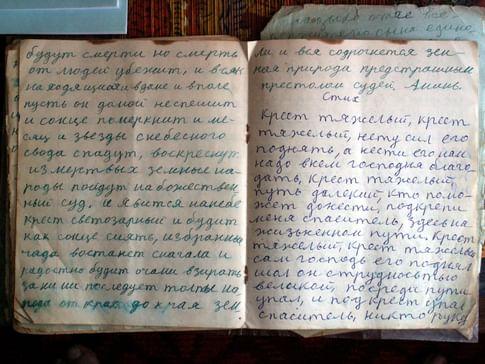 будут смерти но смерть
от людей убежит, и всяк
находящийся вдоне и вполе
пусть он домой неспешит
и сонце померкнит и ме-
сяц и звезды с небесного
свода спадут, воскреснут
измертвых земные на-
роды пойдут на божествен-
ный суд. и явится на небе
крест светозарный и будит
как сонце сиять, избранны
чада востанет сначала и
радостно будит очами взирать,
за ними последует толпы на
рода от края до края зем
ли и вся содрогнется зем-
ная природа предстрашным
престолом судей. Аминь.
Стих
Крест тяжелый, крест
тяжелый, нету сил его
поднять, а нести его нам
надо внем господня благо-
дать, крест тяжелый,
путь далекий кто помо-
жет донести, подкрепи
меня спаситель, здесь на
жизьненном пути. Крест
тяжелый, крест тяжелый
сам господь его поднял
шол онструдностью
великой, посреди пути
упал, и под крест упал
спаситель, никто руку